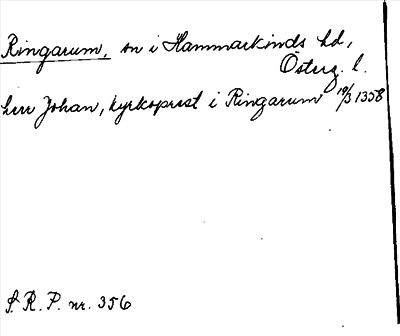 Ringarum, sn i Hammarkinds hd,
Österg. l.
herr Johan, kyrkoprest i Ringarum 19/3 1358
S. R. P. nr. 356